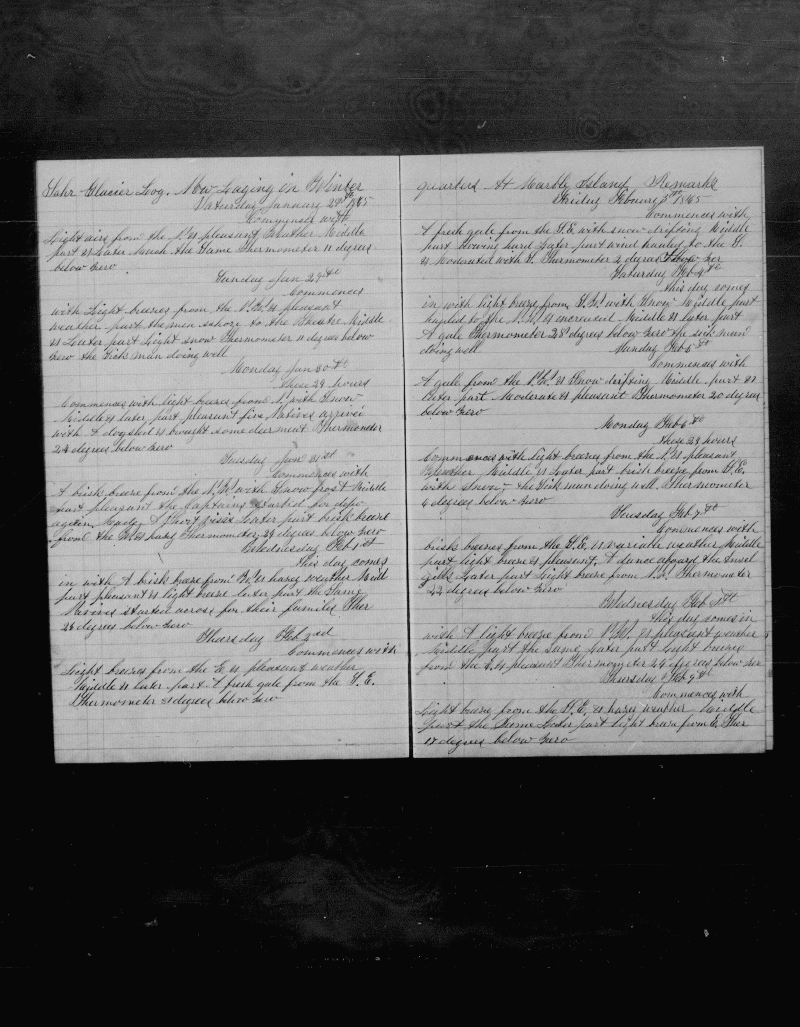 Glacier Log. Now Laying in Winter
Saturday January 28th 1865
Commences with
Light airs from the N. & pleasant Weather Middle
part & Later Much the Same Thermometer 11 degrees
below Zero
Sunday Jan 29th
Commences
with Light breezes from the N.W. & pleasant
weather part the men ashore to the Middle
& Later part Light snow Thermometer 11 degrees below
Zero the Sick man doing well
Monday Jan 30th
These 24 hours
Commences with light breezes from N. with Snow
Middle & later part pleasant five Natives arrived
with A dogsled & brought some deermeat Thermometer
24 degrees below Zero
Tuesday Jan 31st
Commences with
A brisk breeze from the N.W. with Snow frost Middle
part pleasant the Captains Started for
again. Later part brisk breeze
from the hazy Thermometer 29 degrees below Zero
Wednesday Feb 1st
This day comes
in with A brisk breeze from & hazy weather Midd
part pleasant & light breeze later part the Same
Natives started across for their families Ther
26 degrees below Zero
Thursday Feb 2nd
Commences with
Light breezes from the E. & pleasant weather
Middle & later part A fresh gale from the S.E.
Thermometer degrees below Zero
quarters At Marble Island Remarks
Friday Febuary 3th 1865
Commences with
A fresh gale from the S.E. with snow drifting Middle
part blowing hard Later part wind hauled to the S.
& Moderated with Thermometer 2 degrees below Zer
Saturday Feb 4th
This day comes
in with light breeze from with Snow Middle part
hauled to the N.W. & encreased Middle & later part
A gale Thermometer 28 degrees below Zero the sick man
doing well
Sunday Feb 5th
Commences with
A gale from the N.W. & Snow drifting Middle part &
Later part Moderate & pleasant Thermometer 20 degrees
below Zero
Monday Feb 6th
These 24 hours
Commences with light breezes from the N. & pleasant
Weather Middle & Later part brisk breeze from S.E.
with Snow, the Sick man doing well Thermometer
4 degrees below Zero
Tuesday Feb 7th
Commences with
brisk breezes from the S.E. & variable weather Middle
part light breeze & pleasant, A dance aboard the Ansel
Gibbs Later part Light breeze from Thermometer
22 degrees below Zero
Wednesday Feb 8th
This day comes in
with A light breeze from N.W. & pleasant weather
Middle part the Same Later part Light breezes
from the & pleasant Thermometer 24 degrees below Zer
Thursday Feb 9th
Commences with
Light breeze from the S.E. & hazy weather Middle
part the Same Later part light breeze from E. Ther
17 degrees below Zero